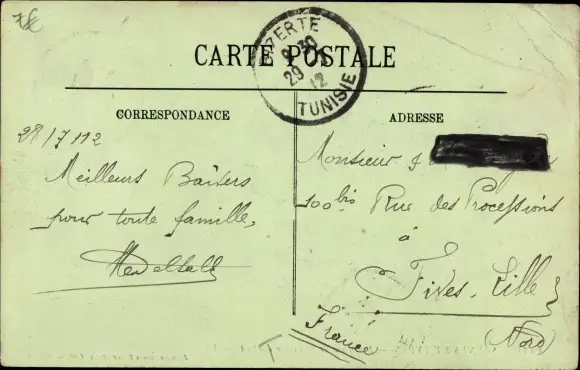 BIZERTE
8 30
29 7
12
TUNISIE
CARTE POSTALE
CORRESPONDANCE
28/7/12
Meilleurs Baisers
pour toute famille,
ADRESSE
Monsieur
100 bis Rue des Processions
à
Fives-Lille
(Nord)
France